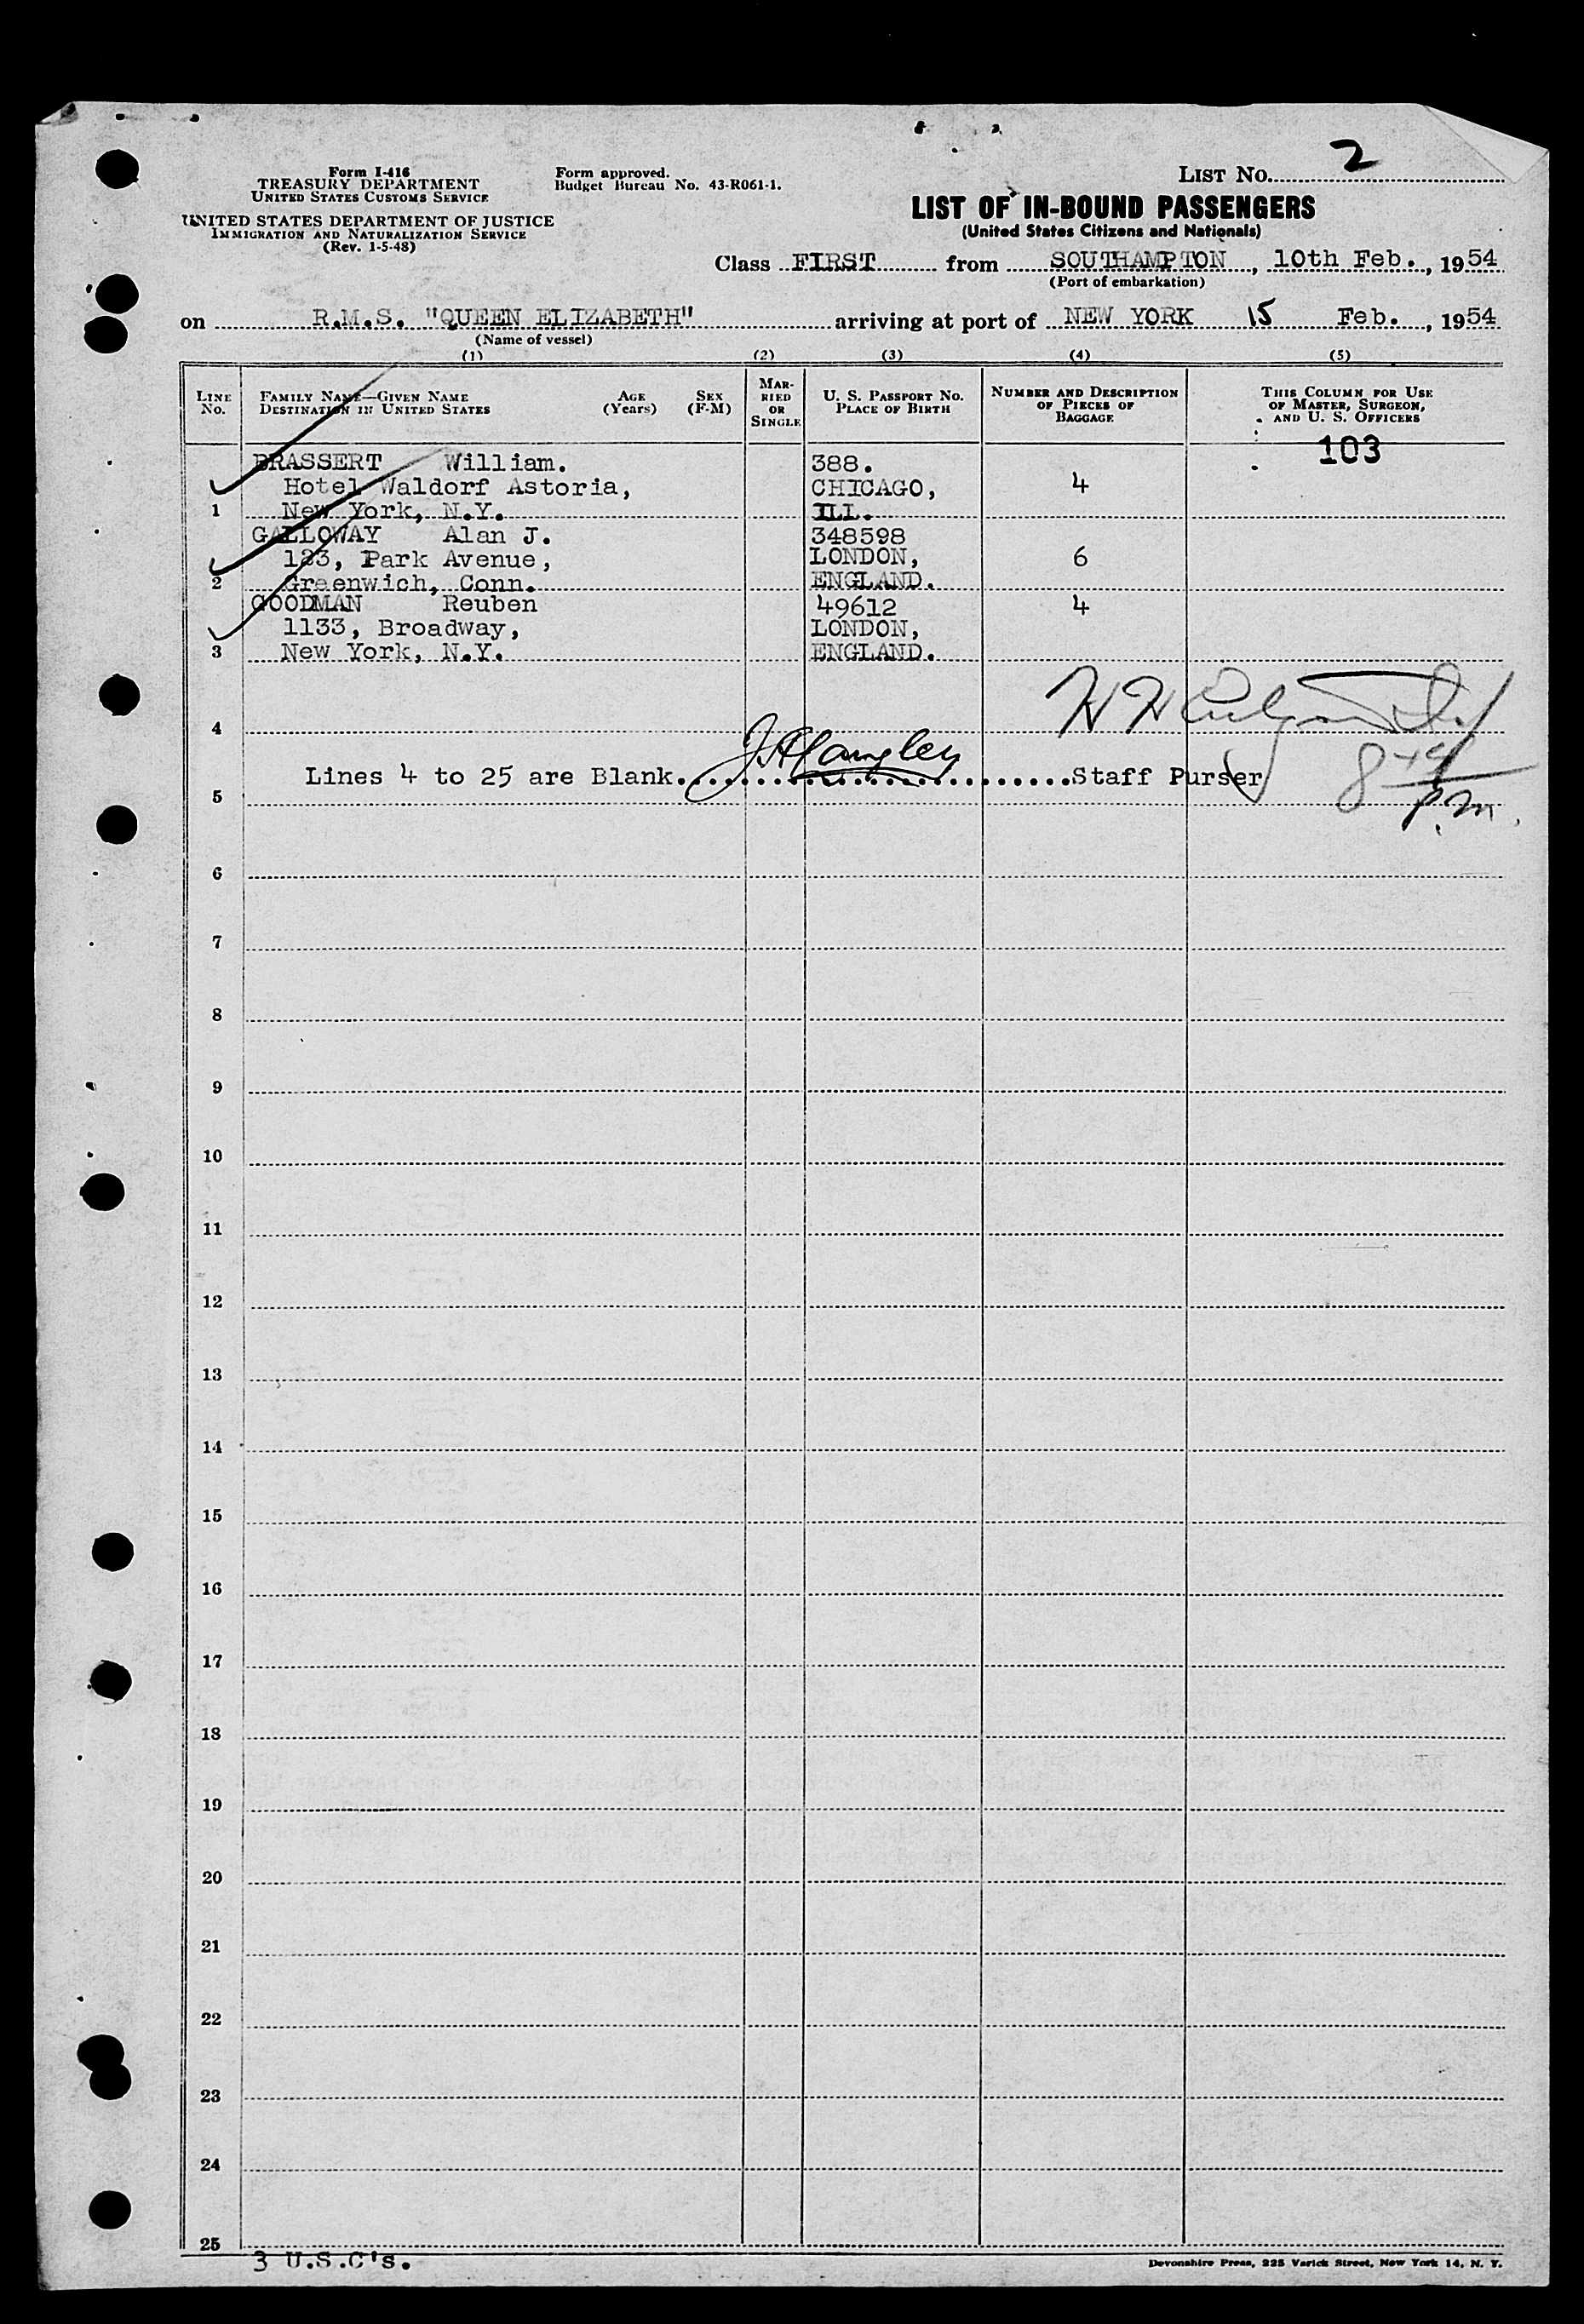 Form I-416
TREASURY DEPARTMENT
UNITED STATES CUSTOMS SERVICE
UNITED STATES DEPARTMENT OF JUSTICE
IMMIGRATION AND NATURALIZATION SERVICE
(Rev. 1-5-48)
Form approved.
Budget Bureau No. 43-R061-1.
LIST NO. 2
LIST OF IN-BOUND PASSENGERS
(United States Citizens and Nationals)
Class FIRST from SOUTHAMPTON, 10th Feb., 1954
(Port of embarkation)
on R.M.S. "QUEEN ELIZABETH" arriving at port of NEW YORK 15 Feb., 1954
(Name of vessel)
(1) (2) (3) (4) (5)
LINE NO.
FAMILY NAME—GIVEN NAME
DESTINATION IN UNITED STATES
AGE (Years)
SEX (F-M)
MARRIED OR SINGLE
U. S. PASSPORT NO.
PLACE OF BIRTH
NUMBER AND DESCRIPTION OF PIECES OF BAGGAGE
THIS COLUMN FOR USE OF MASTER, SURGEON, AND U. S. OFFICERS
103
BRASSERT William. 388.
Hotel Waldorf Astoria, CHICAGO, 4
1 New York, N.Y. ILL.
GALLOWAY Alan J. 348598
123, Park Avenue, LONDON, 6
2 Greenwich, Conn. ENGLAND.
GOODMAN Reuben 49612 4
1133, Broadway, LONDON,
3 New York, N.Y. ENGLAND.
4
Lines 4 to 25 are Blank. J.A. Langley Staff Purser
p.m.
5
6
7
8
9
10
11
12
13
14
15
16
17
18
19
20
21
22
23
24
25
3 U.S.C's.
Devonshire Press, 225 Varick Street, New York 14, N. Y.